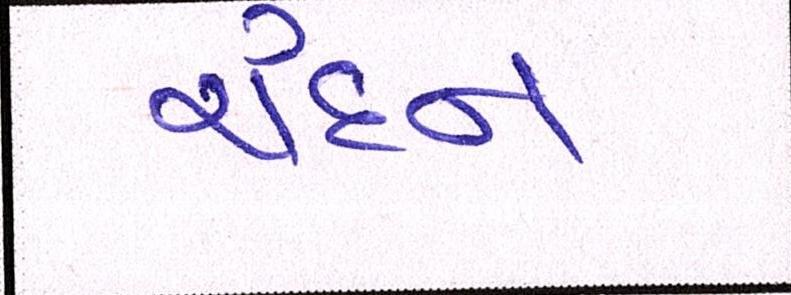 ચંદન